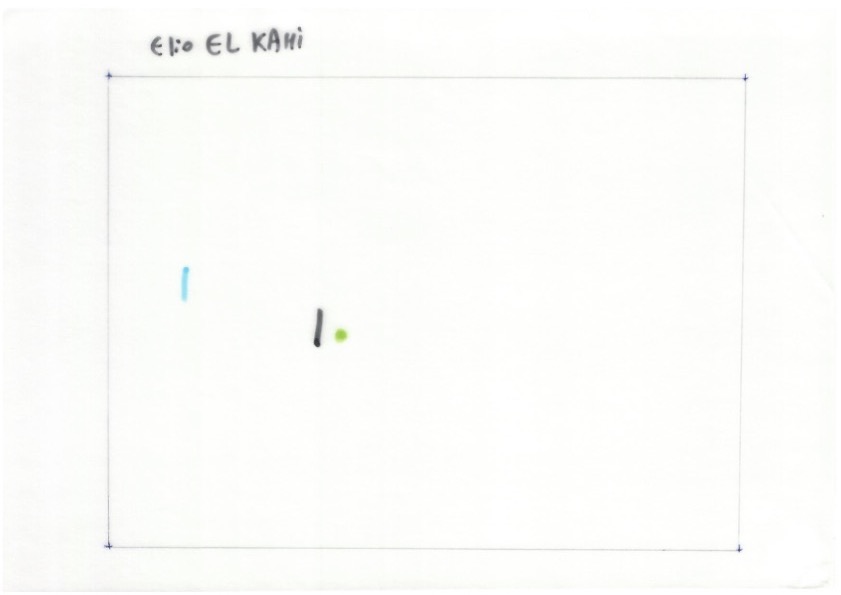 Elio EL KAHi